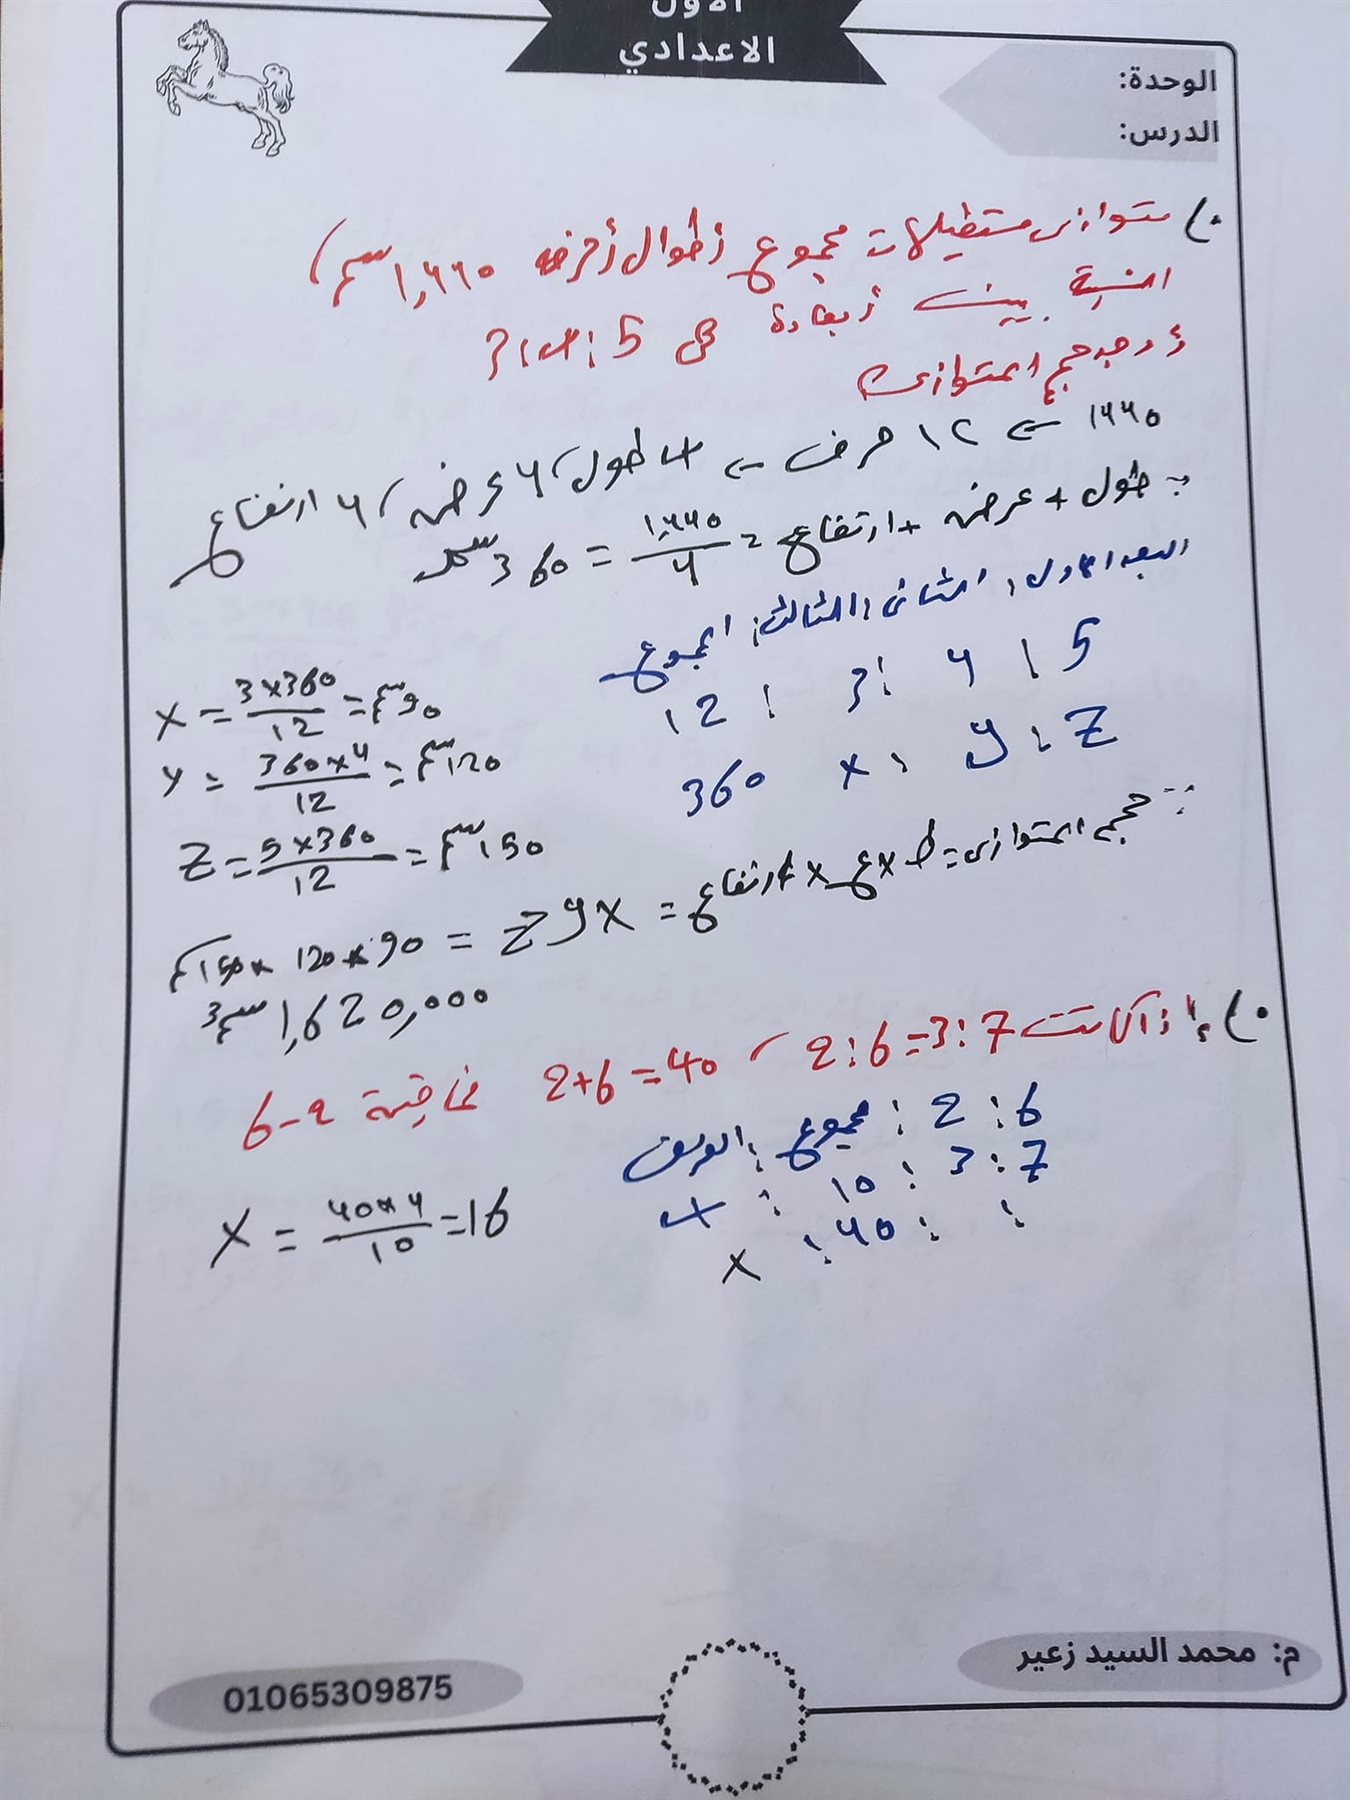 الأول
الاعدادي
الوحدة:
الدرس:
متوازى مستطيلات مجموع أطوال أحرفه 1,440 سم،
النسبة بين أبعاده هى 5 : 4 : 3
أوجد حجم المتوازى
1440 ← 12 حرف ← 4 طول، 4 عرض، 4 ارتفاع
∴ طول + عرض + ارتفاع = 1,440/4 = 360 سم
البعد الاول : الثانى : الثالث : المجموع
5 : 4 : 3 : 12
Z : y : x 360
X = 3×360/12 = 90 سم
y = 360×4/12 = 120 سم
Z = 5×360/12 = 150 سم
∴ حجم المتوازى = ط × ع × ارتفاع = X y Z = 90 × 120 × 150
1,620,000 سم3
إذا كانت 2:6=3:7 ، 2+6=40 فما قيمة 6-2
6 : 2 : مجموع : الفرق
7 : 3 : 10 : 4
: : 40 : X
X = 40×4/10 = 16
م: محمد السيد زعير
01065309875